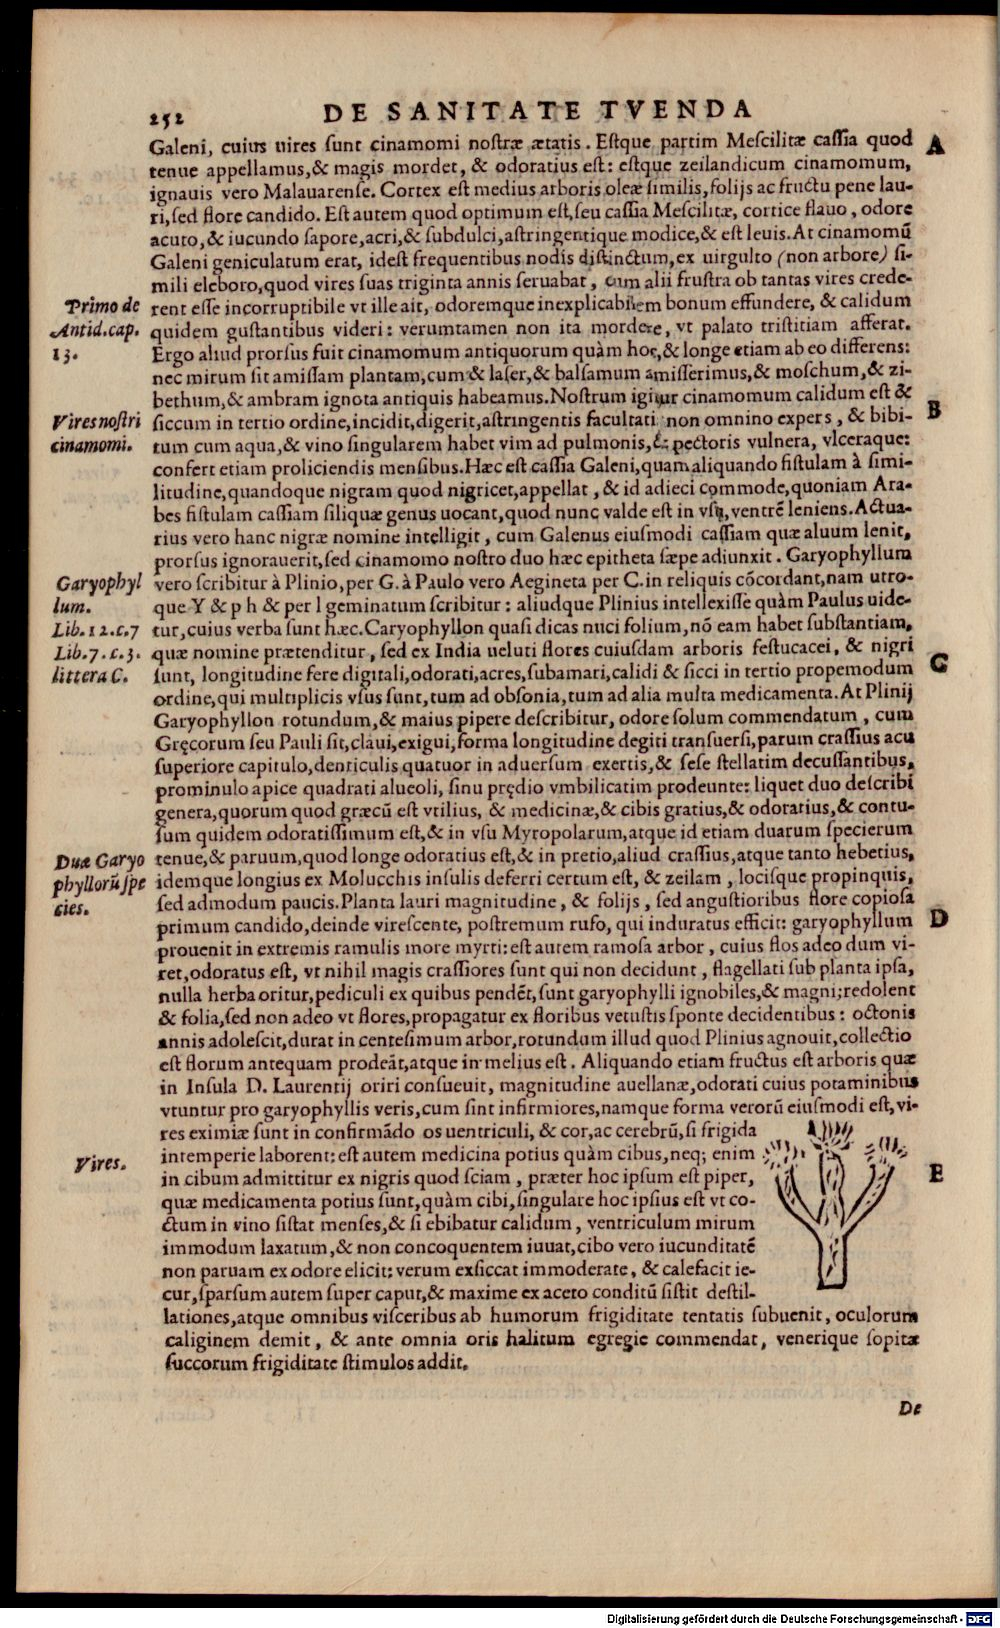 252 DE SANITATE TVENDA
Galeni, cuius uires sunt cinamomi nostræ ætatis. Estque partim Mescilitæ cassia quod
A
tenue appellamus, & magis mordet, & odoratius est: estque zeilandicum cinamomum,
ignauis vero Malauarense. Cortex est medius arboris oleæ similis, folijs ac fructu pene lau-
ri, sed flore candido. Est autem quod optimum est, seu cassia Mescilitæ, cortice flauo, odore
acuto, & iucundo sapore, acri, & subdulci, astringentique modice, & est leuis. At cinamomũ
Galeni geniculatum erat, idest frequentibus nodis distinctum, ex uirgulto (non arbore) si-
mili eleboro, quod vires suas triginta annis seruabat, cum alii frustra ob tantas vires crede-
Primo de
Antid. cap.
13.
rent esse incorruptibile vt ille ait, odoremque inexplicabilem bonum effundere, & calidum
quidem gustantibus videri: verumtamen non ita mordere, vt palato tristitiam afferat.
Ergo aliud prorsus fuit cinamomum antiquorum quàm hoc, & longe etiam ab eo differens:
nec mirum sit amissam plantam, cum & laser, & balsamum amisserimus, & moschum, & zi-
bethum, & ambram ignota antiquis habeamus. Nostrum igitur cinamomum calidum est &
B
Vires nostri
cinamomi.
siccum in tertio ordine, incidit, digerit, astringentis facultati non omnino expers, & bibi-
tum cum aqua, & vino singularem habet vim ad pulmonis, & pectoris vulnera, vlceraque:
confert etiam proliciendis mensibus. Hæc est cassia Galeni, quam aliquando fistulam à simi-
litudine, quandoque nigram quod nigricet, appellat, & id adieci commode, quoniam Ara-
bes fistulam cassiam siliquæ genus uocant, quod nunc valde est in vsu, ventrẽ leniens. Actua-
rius vero hanc nigræ nomine intelligit, cum Galenus eiusmodi cassiam quæ aluum lenit,
prorsus ignorauerit, sed cinamomo nostro duo hæc epitheta sæpe adiunxit. Garyophyllum
Garyophyl
lum.
Lib. 12. c. 7
Lib. 7. c. 3.
littera C.
vero scribitur à Plinio, per G. à Paulo vero Aegineta per C. in reliquis cõcordant, nam utro-
que Y & p h & per l geminatum scribitur: aliudque Plinius intellexisse quàm Paulus uide-
tur, cuius verba sunt hæc. Caryophyllon quasi dicas nuci folium, nõ eam habet substantiam,
quæ nomine prætenditur, sed ex India ueluti flores cuiusdam arboris festucacei, & nigri
C
sunt, longitudine fere digitali, odorati, acres, subamari, calidi & sicci in tertio propemodum
ordine, qui multiplicis vsus sunt, tum ad obsonia, tum ad alia multa medicamenta. At Plinij
Garyophyllon rotundum, & maius pipere describitur, odore solum commendatum, cum
Gręcorum seu Pauli sit, claui, exigui, forma longitudine degiti transuersi, parum crassius acu
superiore capitulo, denticulis quatuor in aduersum exertis, & sese stellatim decussantibus,
prominulo apice quadrati alueoli, sinu prędio vmbilicatim prodeunte: liquet duo describi
genera, quorum quod græcũ est vtilius, & medicinæ, & cibis gratius, & odoratius, & contu-
sum quidem odoratissimum est, & in vsu Myropolarum, atque id etiam duarum specierum
Duæ Garyo
phyllorũ spe
cies.
tenue, & paruum, quod longe odoratius est, & in pretio, aliud crassius, atque tanto hebetius,
idemque longius ex Molucchis insulis deferri certum est, & zeilam, locisque propinquis,
sed admodum paucis. Planta lauri magnitudine, & folijs, sed angustioribus flore copiosa
D
primum candido, deinde virescente, postremum rufo, qui induratus efficit: garyophyllum
prouenit in extremis ramulis more myrti: est autem ramosa arbor, cuius flos adeo dum vi-
ret, odoratus est, vt nihil magis crassiores sunt qui non decidunt, flagellati sub planta ipsa,
nulla herba oritur, pediculi ex quibus pendẽt, sunt garyophylli ignobiles, & magni; redolent
& folia, sed non adeo vt flores, propagatur ex floribus vetustis sponte decidentibus: octonis
annis adolescit, durat in centesimum arbor, rotundum illud quod Plinius agnouit, collectio
est florum antequam prodeãt, atque in melius est. Aliquando etiam fructus est arboris quæ
in Insula D. Laurentij oriri consueuit, magnitudine auellanæ, odorati cuius potaminibus
vtuntur pro garyophyllis veris, cum sint infirmiores, namque forma verorũ eiusmodi est, vi-
Vires.
res eximiæ sunt in confirmãdo os uentriculi, & cor, ac cerebrũ, si frigida
intemperie laborent: est autem medicina potius quàm cibus, neq; enim
in cibum admittitur ex nigris quod sciam, præter hoc ipsum est piper,
E
quæ medicamenta potius sunt, quàm cibi, singulare hoc ipsius est vt co-
ctum in vino sistat menses, & si ebibatur calidum, ventriculum mirum
immodum laxatum, & non concoquentem iuuat, cibo vero iucunditatẽ
non paruam ex odore elicit: verum exsiccat immoderate, & calefacit ie-
cur, sparsum autem super caput, & maxime ex aceto conditũ sistit destil-
lationes, atque omnibus visceribus ab humorum frigiditate tentatis subuenit, oculorum
caliginem demit, & ante omnia oris halitum egregie commendat, venerique sopitæ
succorum frigiditate stimulos addit.
De
Digitalisierung gefördert durch die Deutsche Forschungsgemeinschaft - DFG